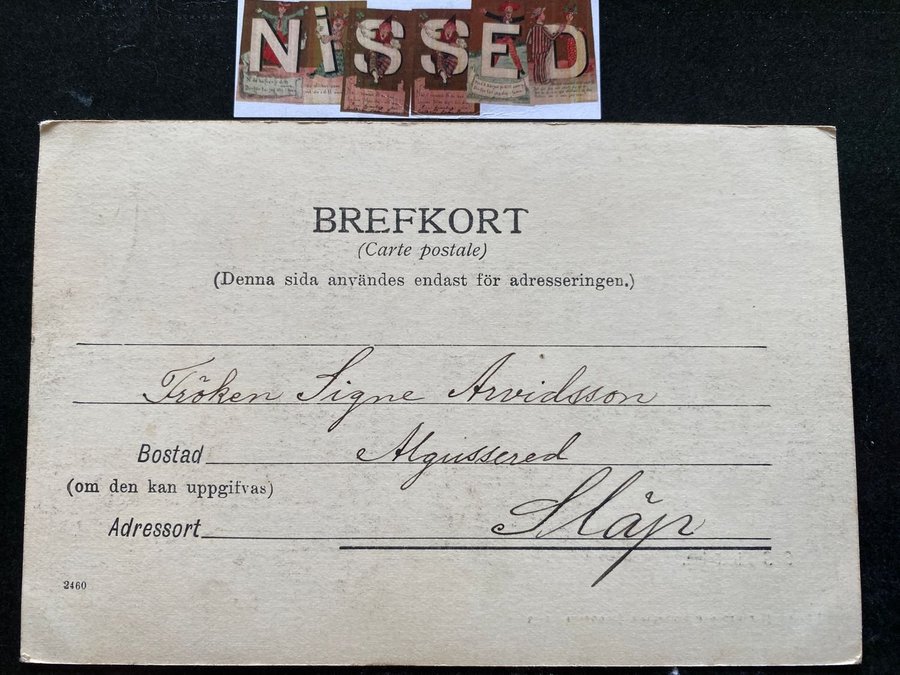 NiSSED
BREFKORT
(Carte postale)
(Denna sida användes endast för adresseringen.)
Fröken Signe Arvidsson
Bostad Algussered
(om den kan uppgifvas)
Adressort Släp
2460